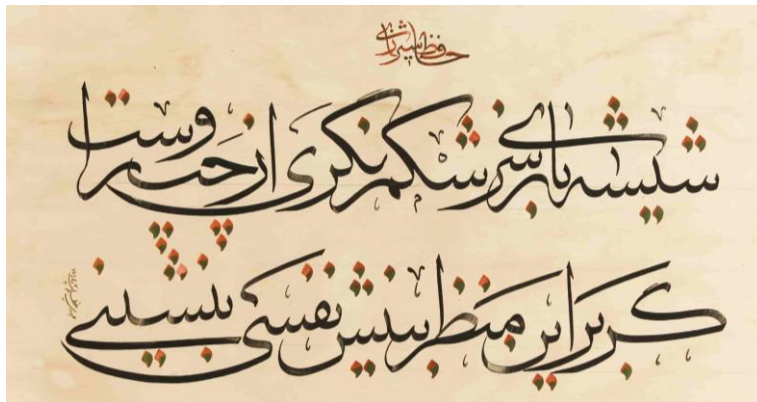 حافظ شیرازی
شیشه بازی سرشکم نگری از چپ و راست
گر بر این منظر بینش نفسی بنشینی